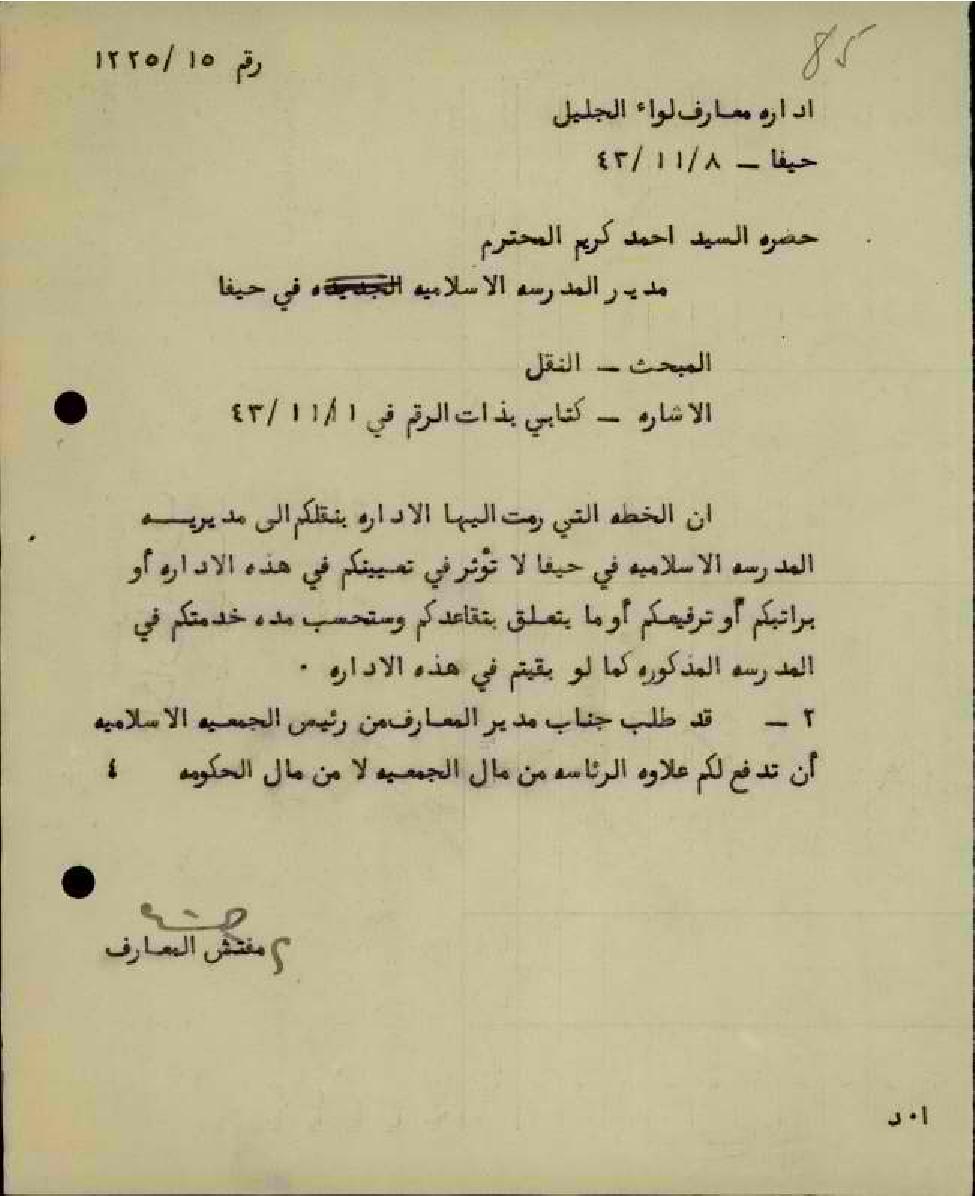 85
رقم ١٥ /١٢٢٥
اداره معارف لواء الجليل
حيفا ــ ٨ /١١ /٤٣
حضره السيد احمد كريم المحترم
مدير المدرسه الاسلاميه الجديده في حيفا
المبحث ــ النقل
الاشاره ــ كتابي بذات الرقم في ١ /١١ /٤٣
ان الخطه التي رمت اليها الاداره بنقلكم الى مديريــه
المدرسه الاسلاميه في حيفا لا تؤثر في تعيينكم في هذه الاداره أو
براتبكم أو ترفيعكم أو ما يتعلق بتقاعدكم وستحسب مده خدمتكم في
المدرسه المذكوره كما لو بقيتم في هذه الاداره ٠
٢ ــ قد طلب جناب مدير المعارف من رئيس الجمعيه الاسلاميه
أن تدفع لكم علاوه الرئاسه من مال الجمعيه لا من مال الحكومه ٤
مفتش المعارف
ا٠د